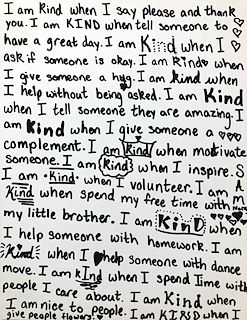 I am kind when I say please and thank
you. I am KIND when tell someone to
have a great day. I am Kind when I
ask if someone is okay. I am KIND when
I give someone a hug. I am kind when
I help without being asked. I am KIND
when I tell someone they are amazing. I
am Kind when I give someone a
complement. I am kind when motivate
someone. I am Kind when I inspire.
I am Kind when I volunteer. I am
Kind when spend my free time with
my little brother. I am KinD when
I help someone with homework. I am
Kind when I help someone with dance
move. I am kInd when I spend time with
people I care about. I am Kind when
I am nice to people. I am KIND when I
give people flowers.